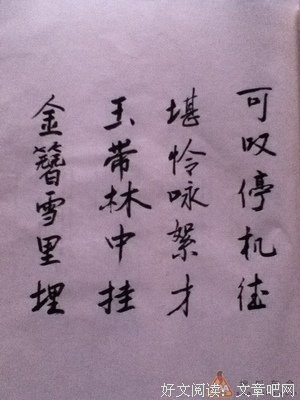 可叹停机德
堪怜咏絮才
玉带林中挂
金簪雪里埋
好文阅读 文章吧网